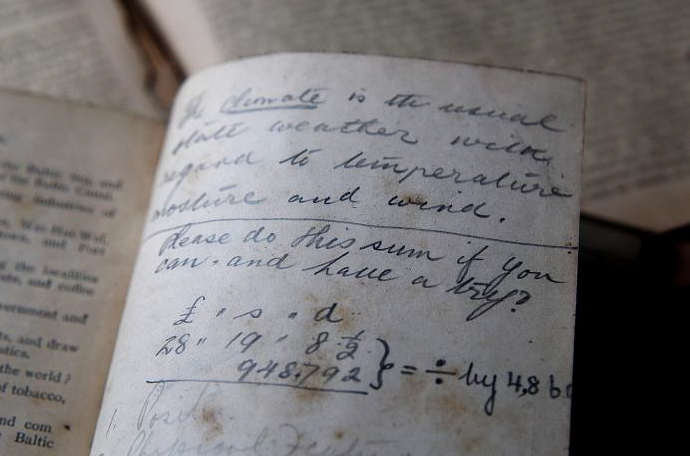 the Baltic Sea, and
of the Baltic Canal.
industries of
Wei-Hai-Wei,
and Port
the localities
and coffee
vernment and
ts, and draw
the world?
of tobacco,
nd com
Baltic
The climate is the usual
state weather with
regard to temperature
moisture and wind.
Please do this sum if you
can. and have a try?
£ " s " d
28 " 19 " 8 ½
948.792 } = ÷ by 4,8
1. Posit
Physical Featu